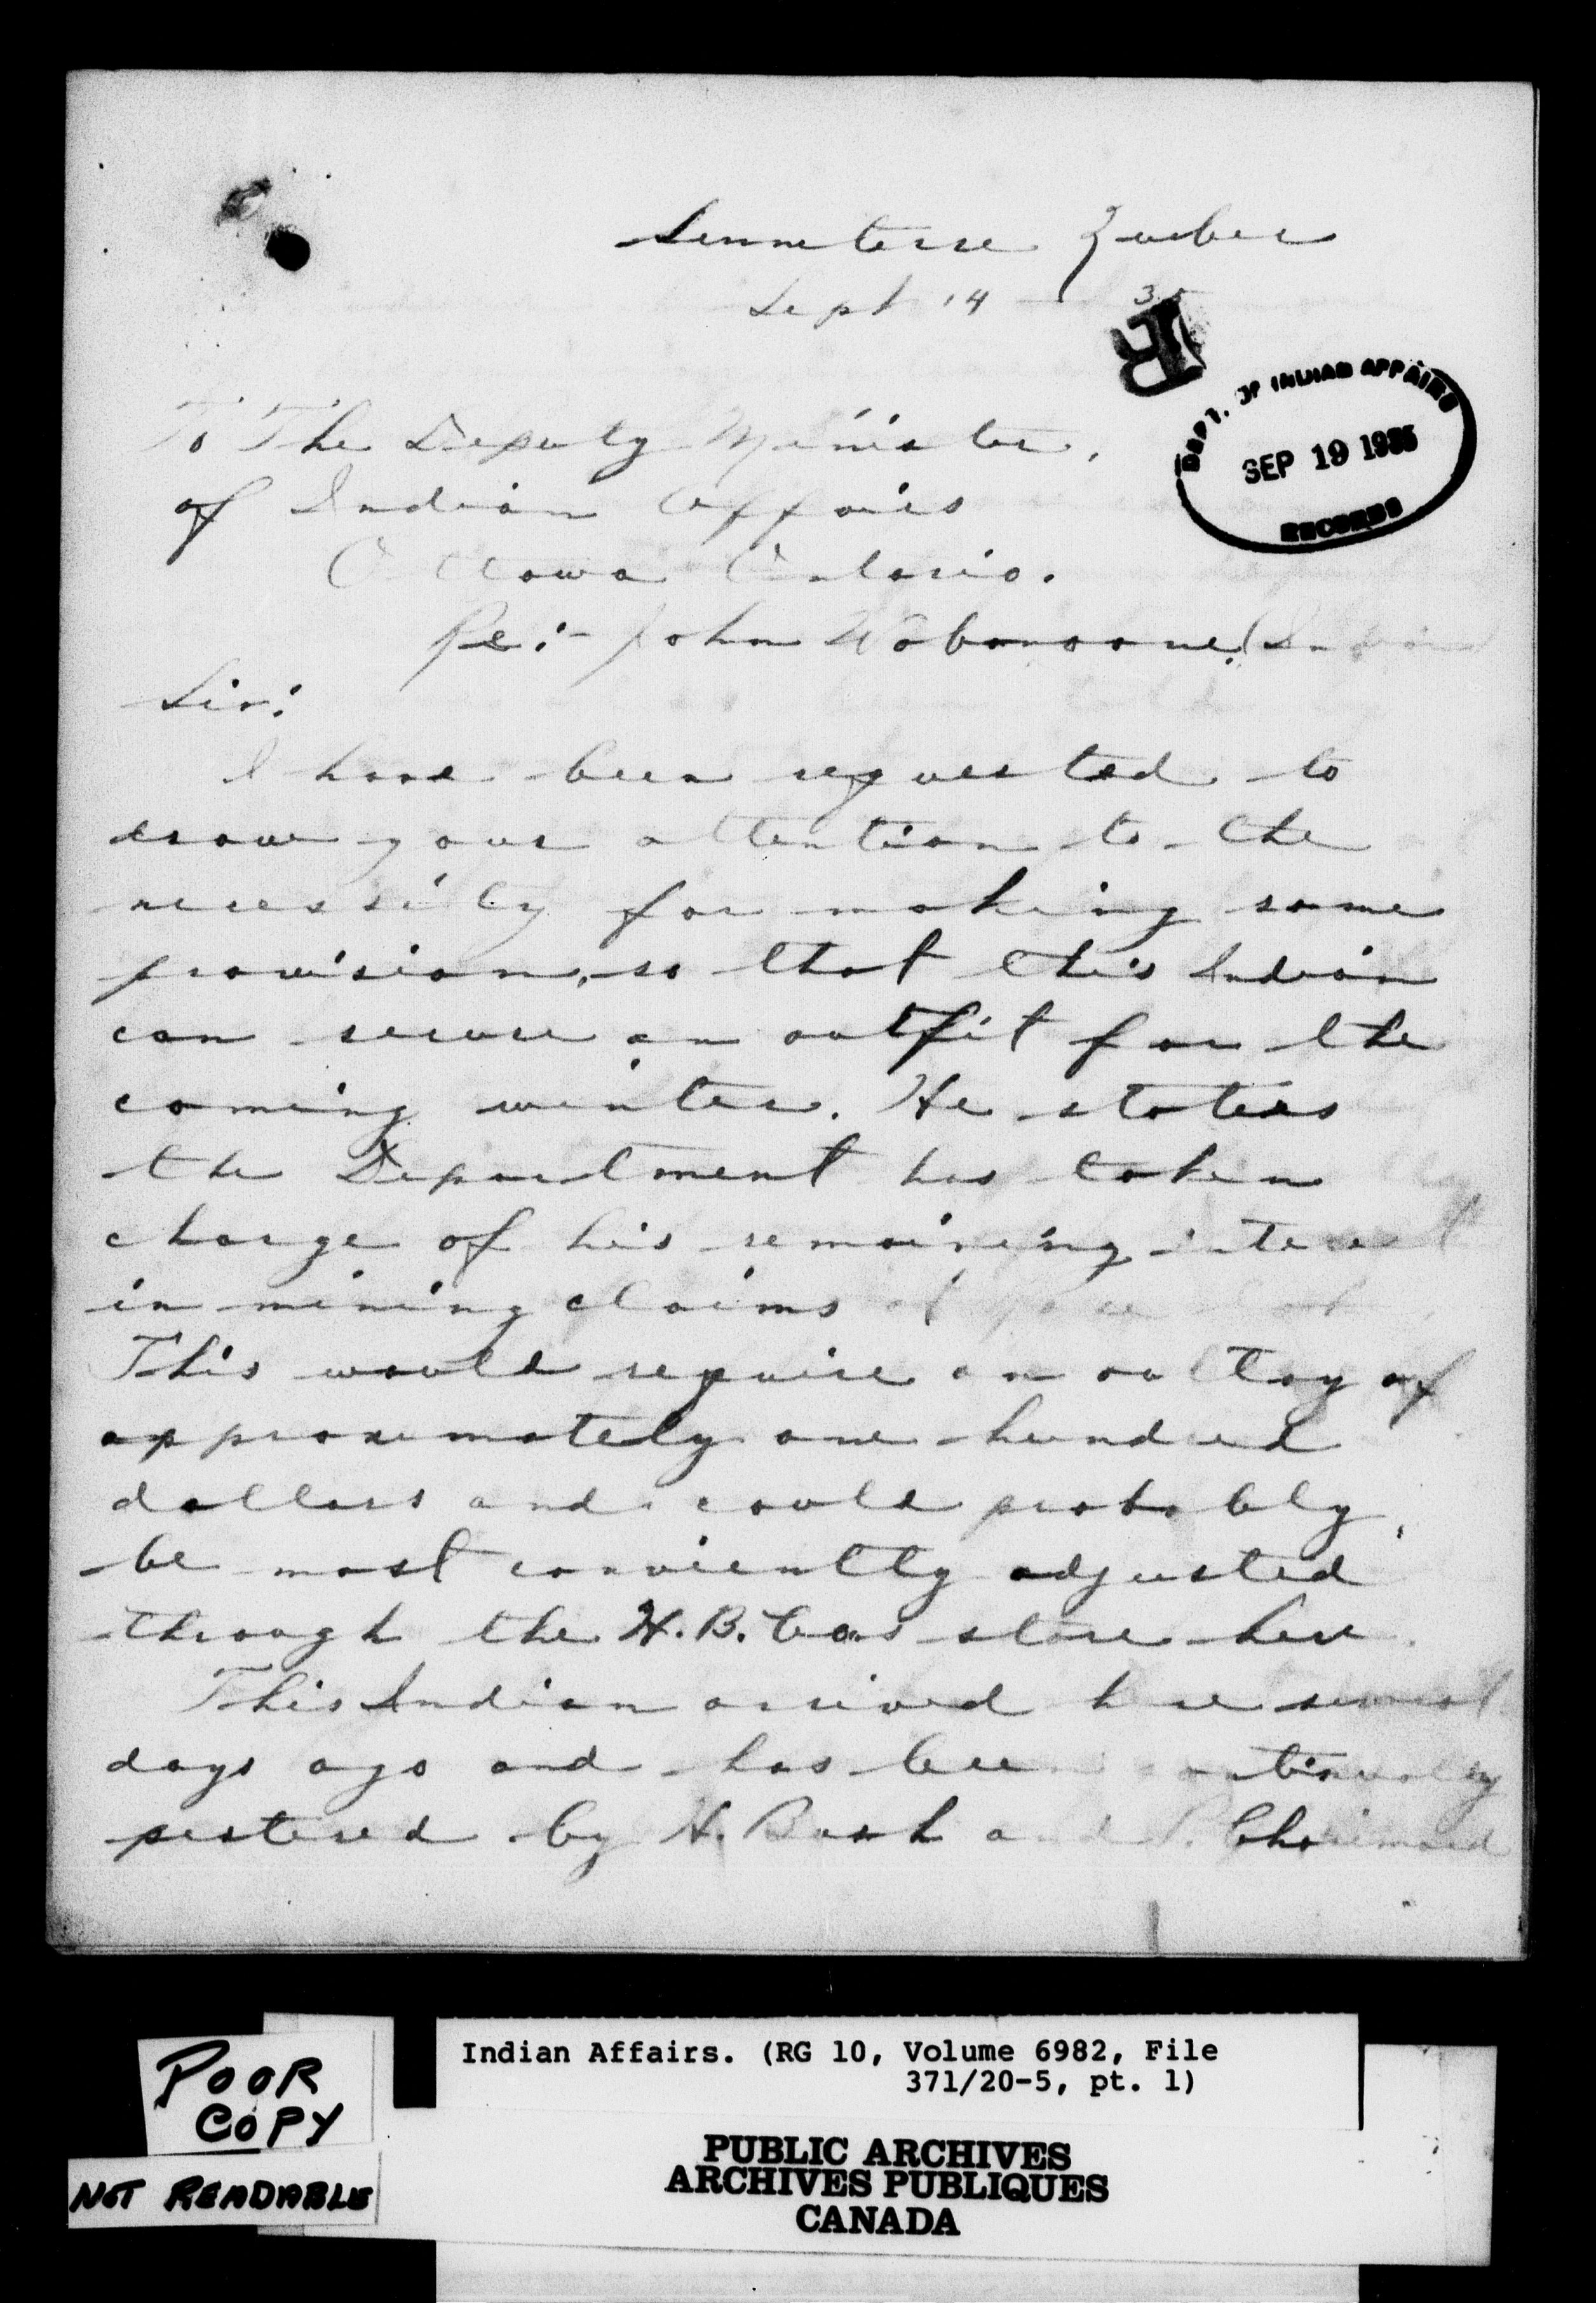 Senneterre Quebec
Sept 14 35
R
DEPT. OF INDIAN AFFAIRS
SEP 19 1935
RECORDS
To The Deputy Minister,
of Indian Affairs
Ottawa Ontario.
Re:- John (Indian
Sir:
I have been requested to
draw your attention to the
necessity for making some
provision, so that this Indian
can secure an outfit for the
coming winter. He states
the Department has taken
charge of his remaining interest
in mining claims at
This would require an outlay of
approximately one hundred
dollars and could probably,
be most conviently adjusted
through the H.B. Cos store here.
This Indian arrived here several
days ago and has been continually
pestered by H. Bush and P.
POOR
COPY
NOT READABLE
Indian Affairs. (RG 10, Volume 6982, File
371/20-5, pt. 1)
PUBLIC ARCHIVES
ARCHIVES PUBLIQUES
CANADA